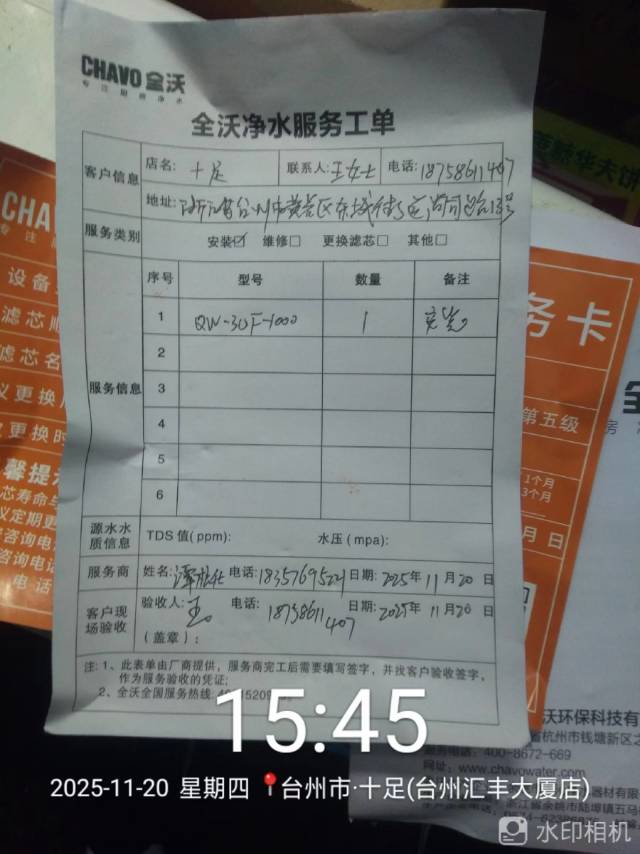 CHAVO 全沃
专注厨房净水
全沃净水服务工单
客户信息 店名: 十足 联系人: 王女士 电话: 18758611407
地址: 浙江省台州市黄岩区东城街道
服务类别 安装☑ 维修□ 更换滤芯□ 其他□
服务信息 序号 型号 数量 备注
1 QW-3UF-1000 1
2
3
4
5
6
源水水质信息 TDS 值(ppm): 水压(mpa):
服务商 姓名: 电话: 18357695221 日期: 2025年11月20日
客户现场验收 验收人: 王 电话: 18758611407 日期: 2025年11月20日
(盖章):
注: 1、此表单由厂商提供,服务商完工后需要填写签字,并找客户验收签字,
作为服务验收的凭证;
2、全沃全国服务热线:
15:45
2025-11-20 星期四 台州市·十足(台州汇丰大厦店)
水印相机
CHA
设备
滤芯
滤芯名
议更换
更换时
馨提示
芯寿命与
议定期更
咨询电话
电话
务卡
第五级
1个月
3个月
月 日
沃环保科技有
省杭州市钱塘新区
服务电话: 400-8672-669
网址: www.chavowater.com